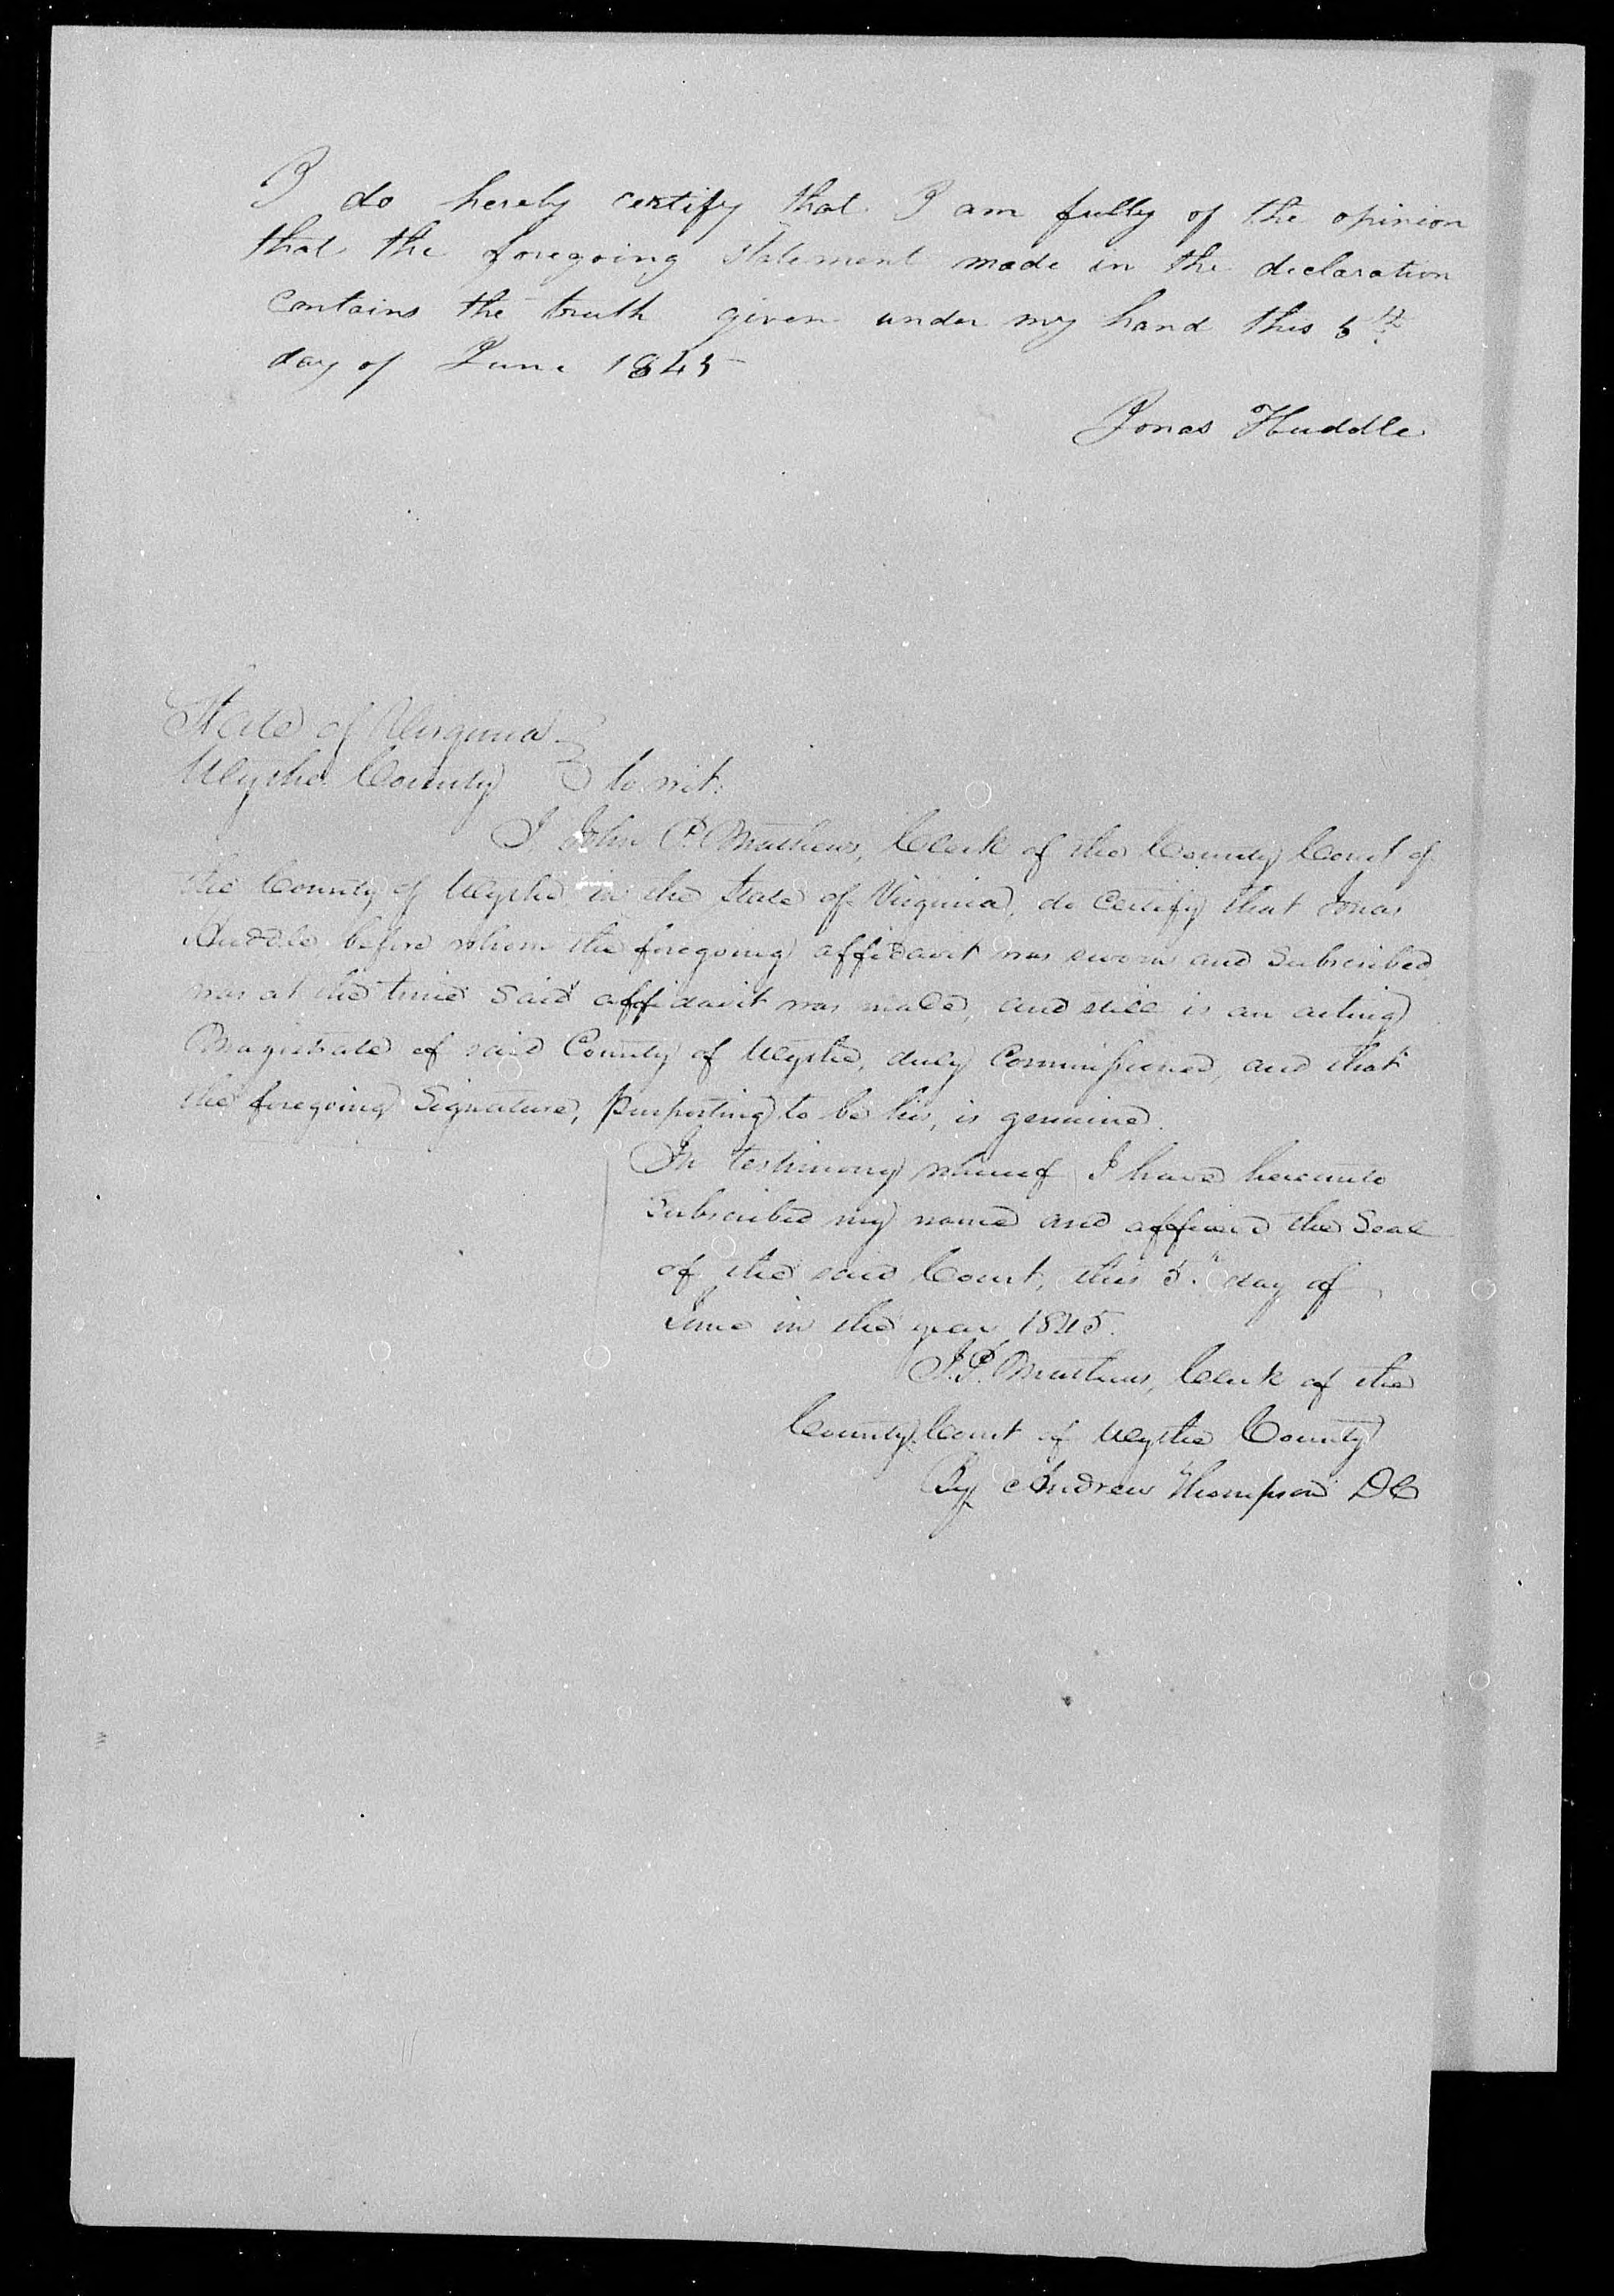 I do hereby certify that I am fully of the opinion
that the foregoing statement made in the declaration
contains the truth given under my hand this 5th
day of June 1845
Jonas Huddle
State of Virginia
Wythe County to wit:
I John P. Mathews, Clerk of the County Court of
the County of Wythe in the State of Virginia, do Certify that Jonas
Huddle before whom the foregoing affidavit was sworn and Subscribed
was at the time Said affidavit was made, and still is an acting
Magistrate of said County of Wythe, duly Commissioned, and that
the foregoing Signature, purporting to be his, is genuine.
In testimony whereof I have hereunto
Subscribed my name and affixed the Seal
of the said Court, this 5th day of
June in the year 1845.
J. P. Mathews, Clerk of the
County Court of Wythe County
By Andrew Thompson DC